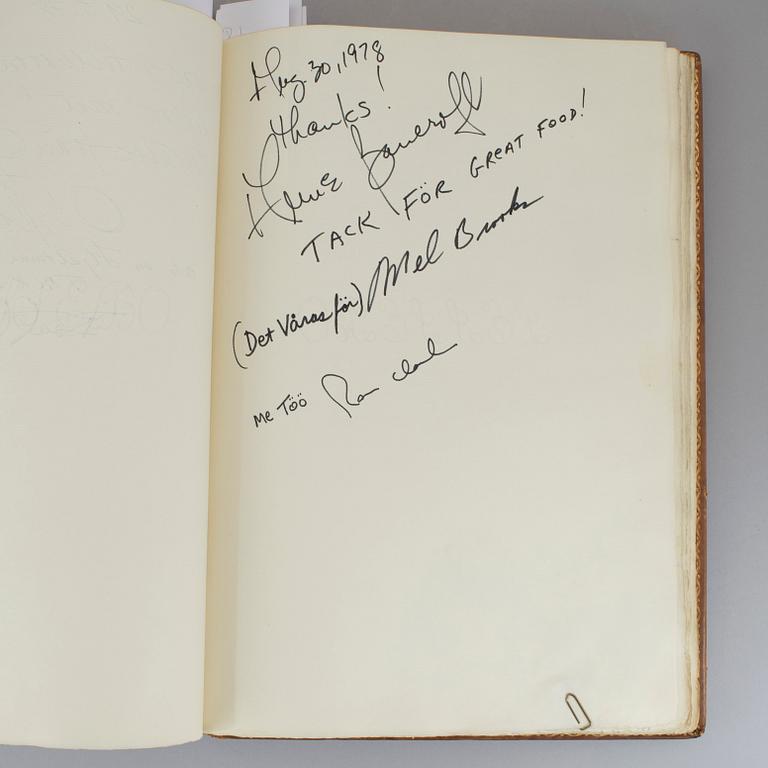 Aug. 30, 1978
Thanks!
Anne Bancroft
TACK FÖR GREAT FOOD!
(Det Våras för) Mel Brooks
Me Töö Ron Clark